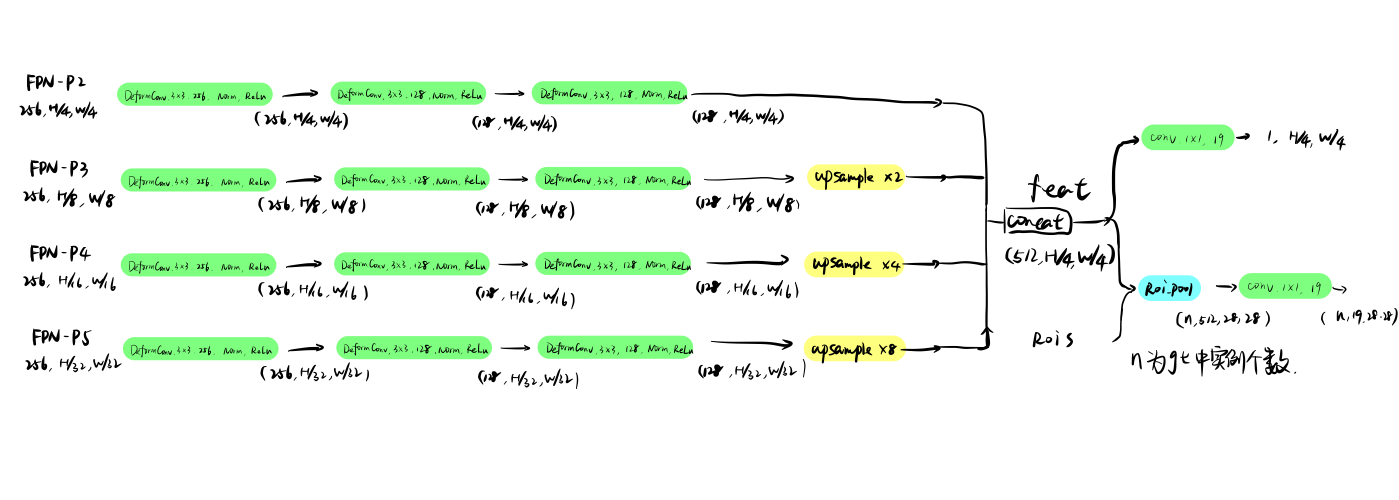 FPN-P2
256, H/4, W/4
DeformConv, 3×3 256, Norm, ReLu
(256, H/4, W/4)
DeformConv, 3×3, 128, Norm, ReLu
(128, H/4, W/4)
DeformConv, 3×3, 128, Norm, ReLu
(128, H/4, W/4)
FPN-P3
256, H/8, W/8
DeformConv, 3×3 256, Norm, ReLu
(256, H/8, W/8)
DeformConv, 3×3, 128, Norm, ReLu
(128, H/8, W/8)
DeformConv, 3×3, 128, Norm, ReLu
(128, H/8, W/8)
upsample ×2
FPN-P4
256, H/16, W/16
DeformConv, 3×3 256, Norm, ReLu
(256, H/16, W/16)
DeformConv, 3×3, 128, Norm, ReLu
(128, H/16, W/16)
DeformConv, 3×3, 128, Norm, ReLu
(128, H/16, W/16)
upsample ×4
FPN-P5
256, H/32, W/32
DeformConv, 3×3 256, Norm, ReLu
(256, H/32, W/32)
DeformConv, 3×3, 128, Norm, ReLu
(128, H/32, W/32)
DeformConv, 3×3, 128, Norm, ReLu
(128, H/32, W/32)
upsample ×8
feat
concat
(512, H/4, W/4)
Rois
conv, 1×1, 19
1, H/4, W/4
Roi_pool
(n, 512, 28, 28)
conv, 1×1, 19
(n, 19, 28, 28)
n为gt中实例个数.